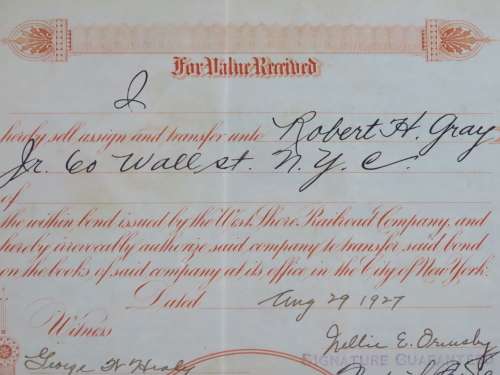 For Value Received
I
hereby sell assign and transfer unto Robert H. Gray
Jr. 60 Wall st. N.Y.C.
of
the within bond issued by the West Shore Railroad Company, and
hereby irrevocably authorize said company to transfer said bond
on the books of said company at its office in the City of New York.
Dated Aug 29 1927
Witness
Nellie E. Ormsby
George W Healy
SIGNATURE GUARANTEED